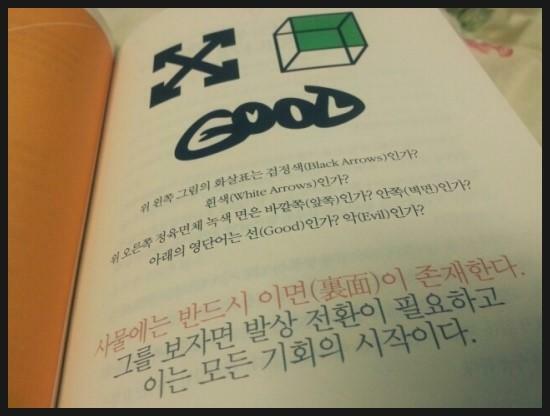 GOOD
위 왼쪽 그림의 화살표는 검정색(Black Arrows)인가?
흰색(White Arrows)인가?
위 오른쪽 정육면체 녹색 면은 바깥쪽(앞쪽)인가? 안쪽(벽면)인가?
아래의 영단어는 선(Good)인가? 악(Evil)인가?
사물에는 반드시 이면(裏面)이 존재한다.
그를 보자면 발상 전환이 필요하고
이는 모든 기회의 시작이다.